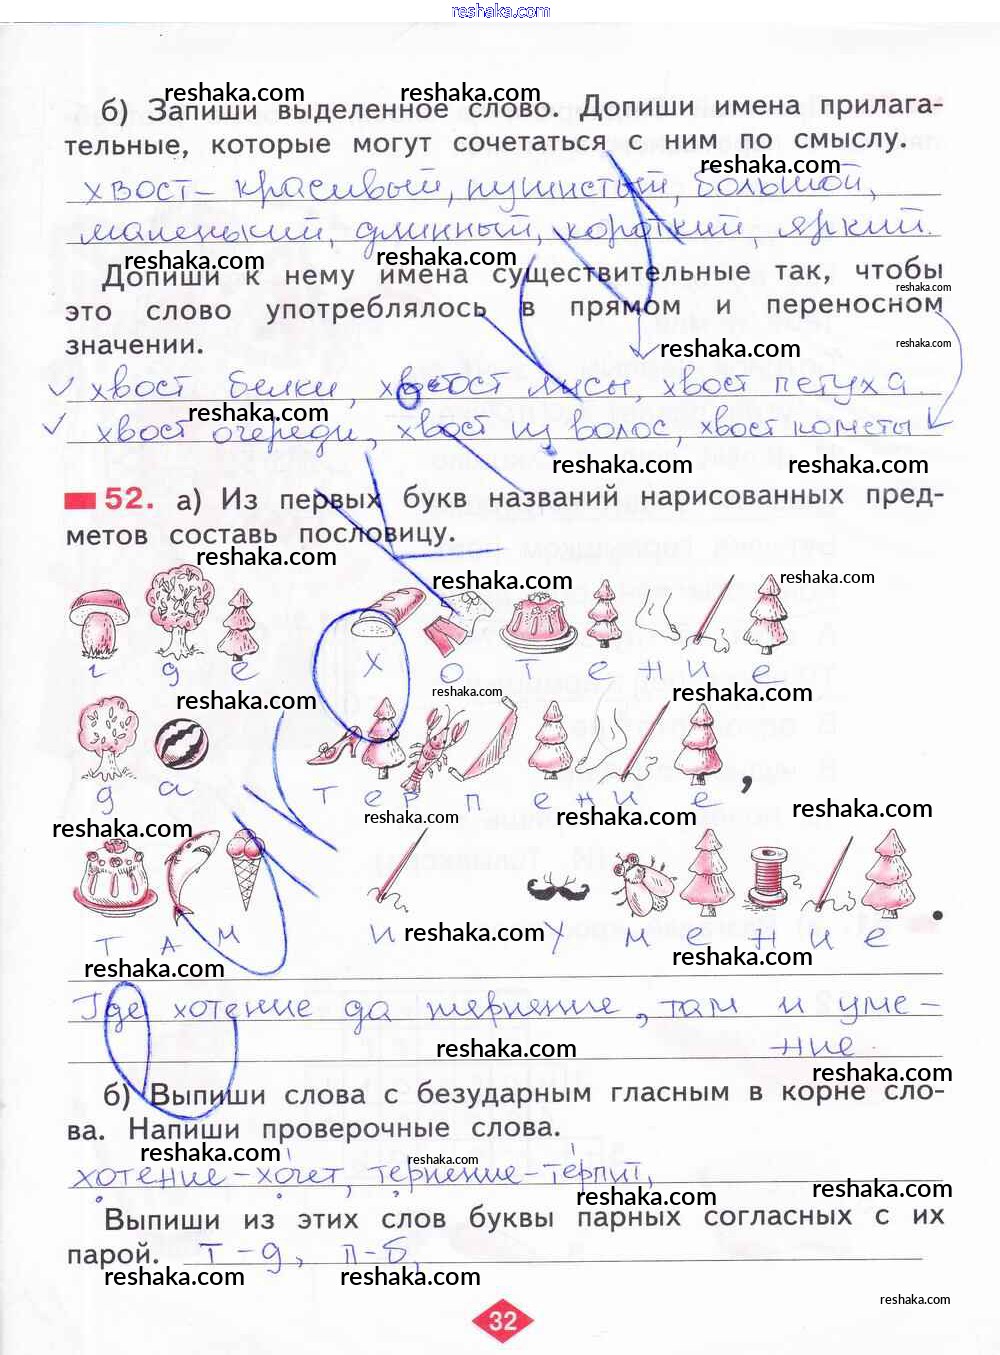 reshaka.com
reshaka.com reshaka.com
б) Запиши выделенное слово. Допиши имена прилага-
тельные, которые могут сочетаться с ним по смыслу.
reshaka.com
хвост – красивый, пушистый, большой,
маленький, длинный, короткий, яркий.
reshaka.com reshaka.com
Допиши к нему имена существительные так, чтобы
reshaka.com
это слово употреблялось в прямом и переносном
значении.
reshaka.com reshaka.com
хвост белки, хвост лисы, хвост петуха.
reshaka.com
хвост очереди, хвост из волос, хвост кометы
reshaka.com reshaka.com
52. а) Из первых букв названий нарисованных пред-
метов составь пословицу.
reshaka.com reshaka.com reshaka.com
г д е х о т е н и е
reshaka.com reshaka.com reshaka.com
д а т е р п е н и е ,
reshaka.com reshaka.com reshaka.com reshaka.com
т а м и у м е н и е .
reshaka.com reshaka.com reshaka.com
Где хотение да терпение, там и уме-
ние.
reshaka.com reshaka.com
б) Выпиши слова с безударным гласным в корне сло-
ва. Напиши проверочные слова.
reshaka.com reshaka.com
хотение – хочет, терпение – терпит,
reshaka.com reshaka.com
Выпиши из этих слов буквы парных согласных с их
парой. т – д, п – б,
reshaka.com reshaka.com
reshaka.com
32